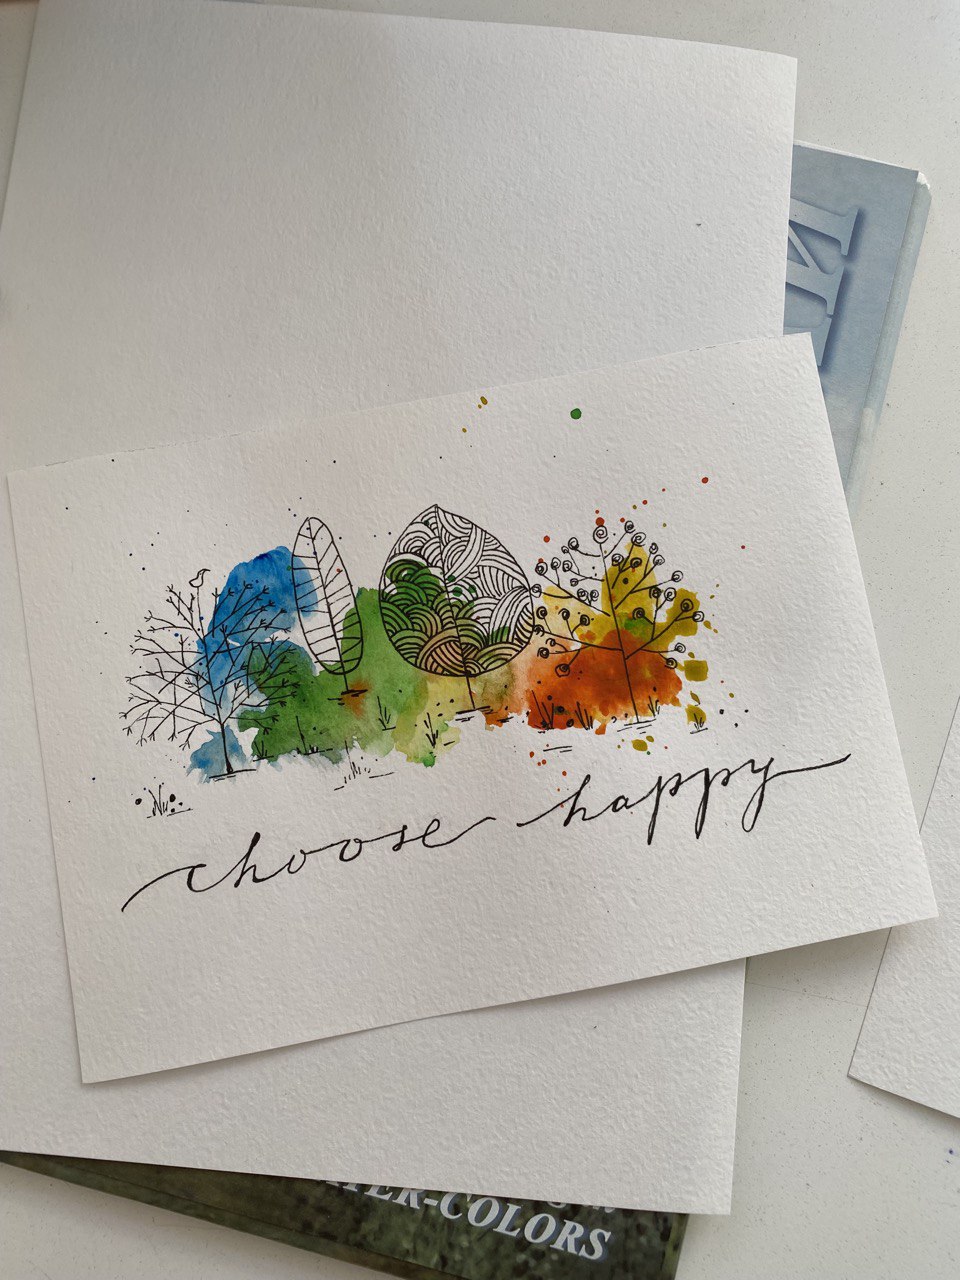 choose happy
WATER-COLORS